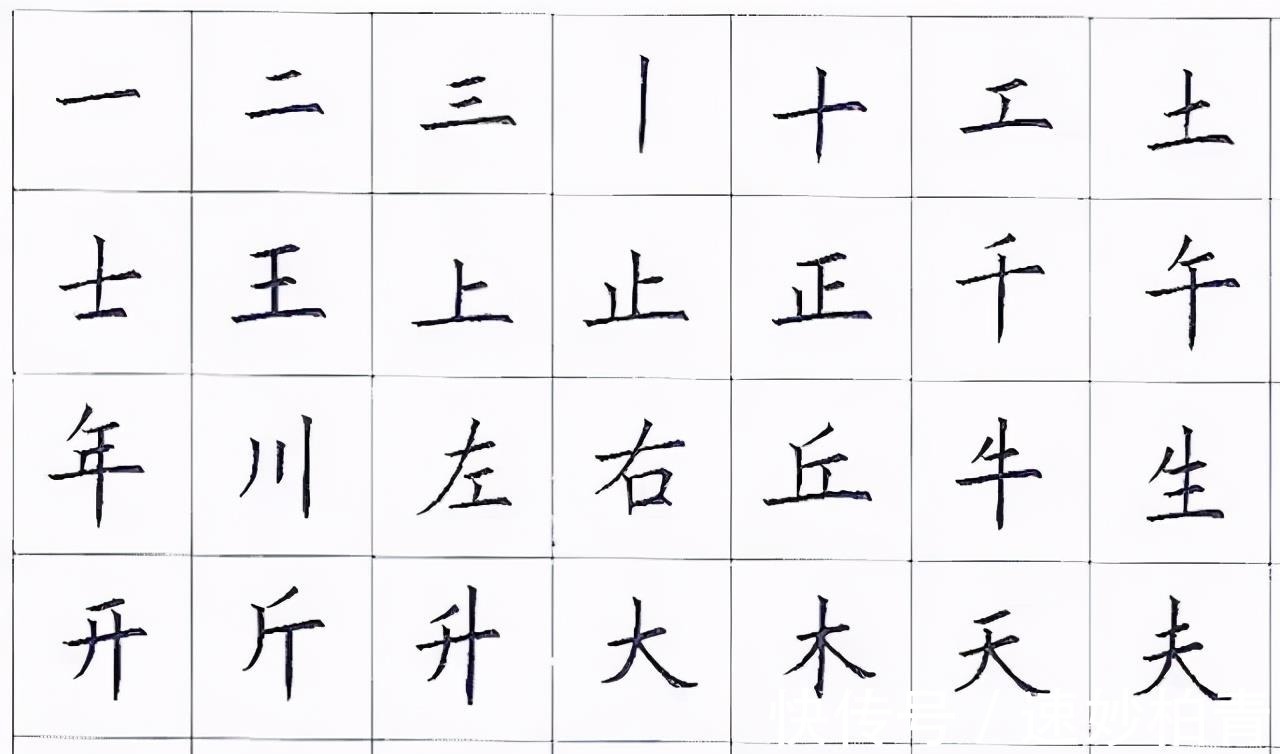 一 二 三 丨 十 工 土
士 王 上 止 正 千 午
年 川 左 右 丘 牛 生
开 斤 升 大 木 天 夫
快传号 / 速妙柏青